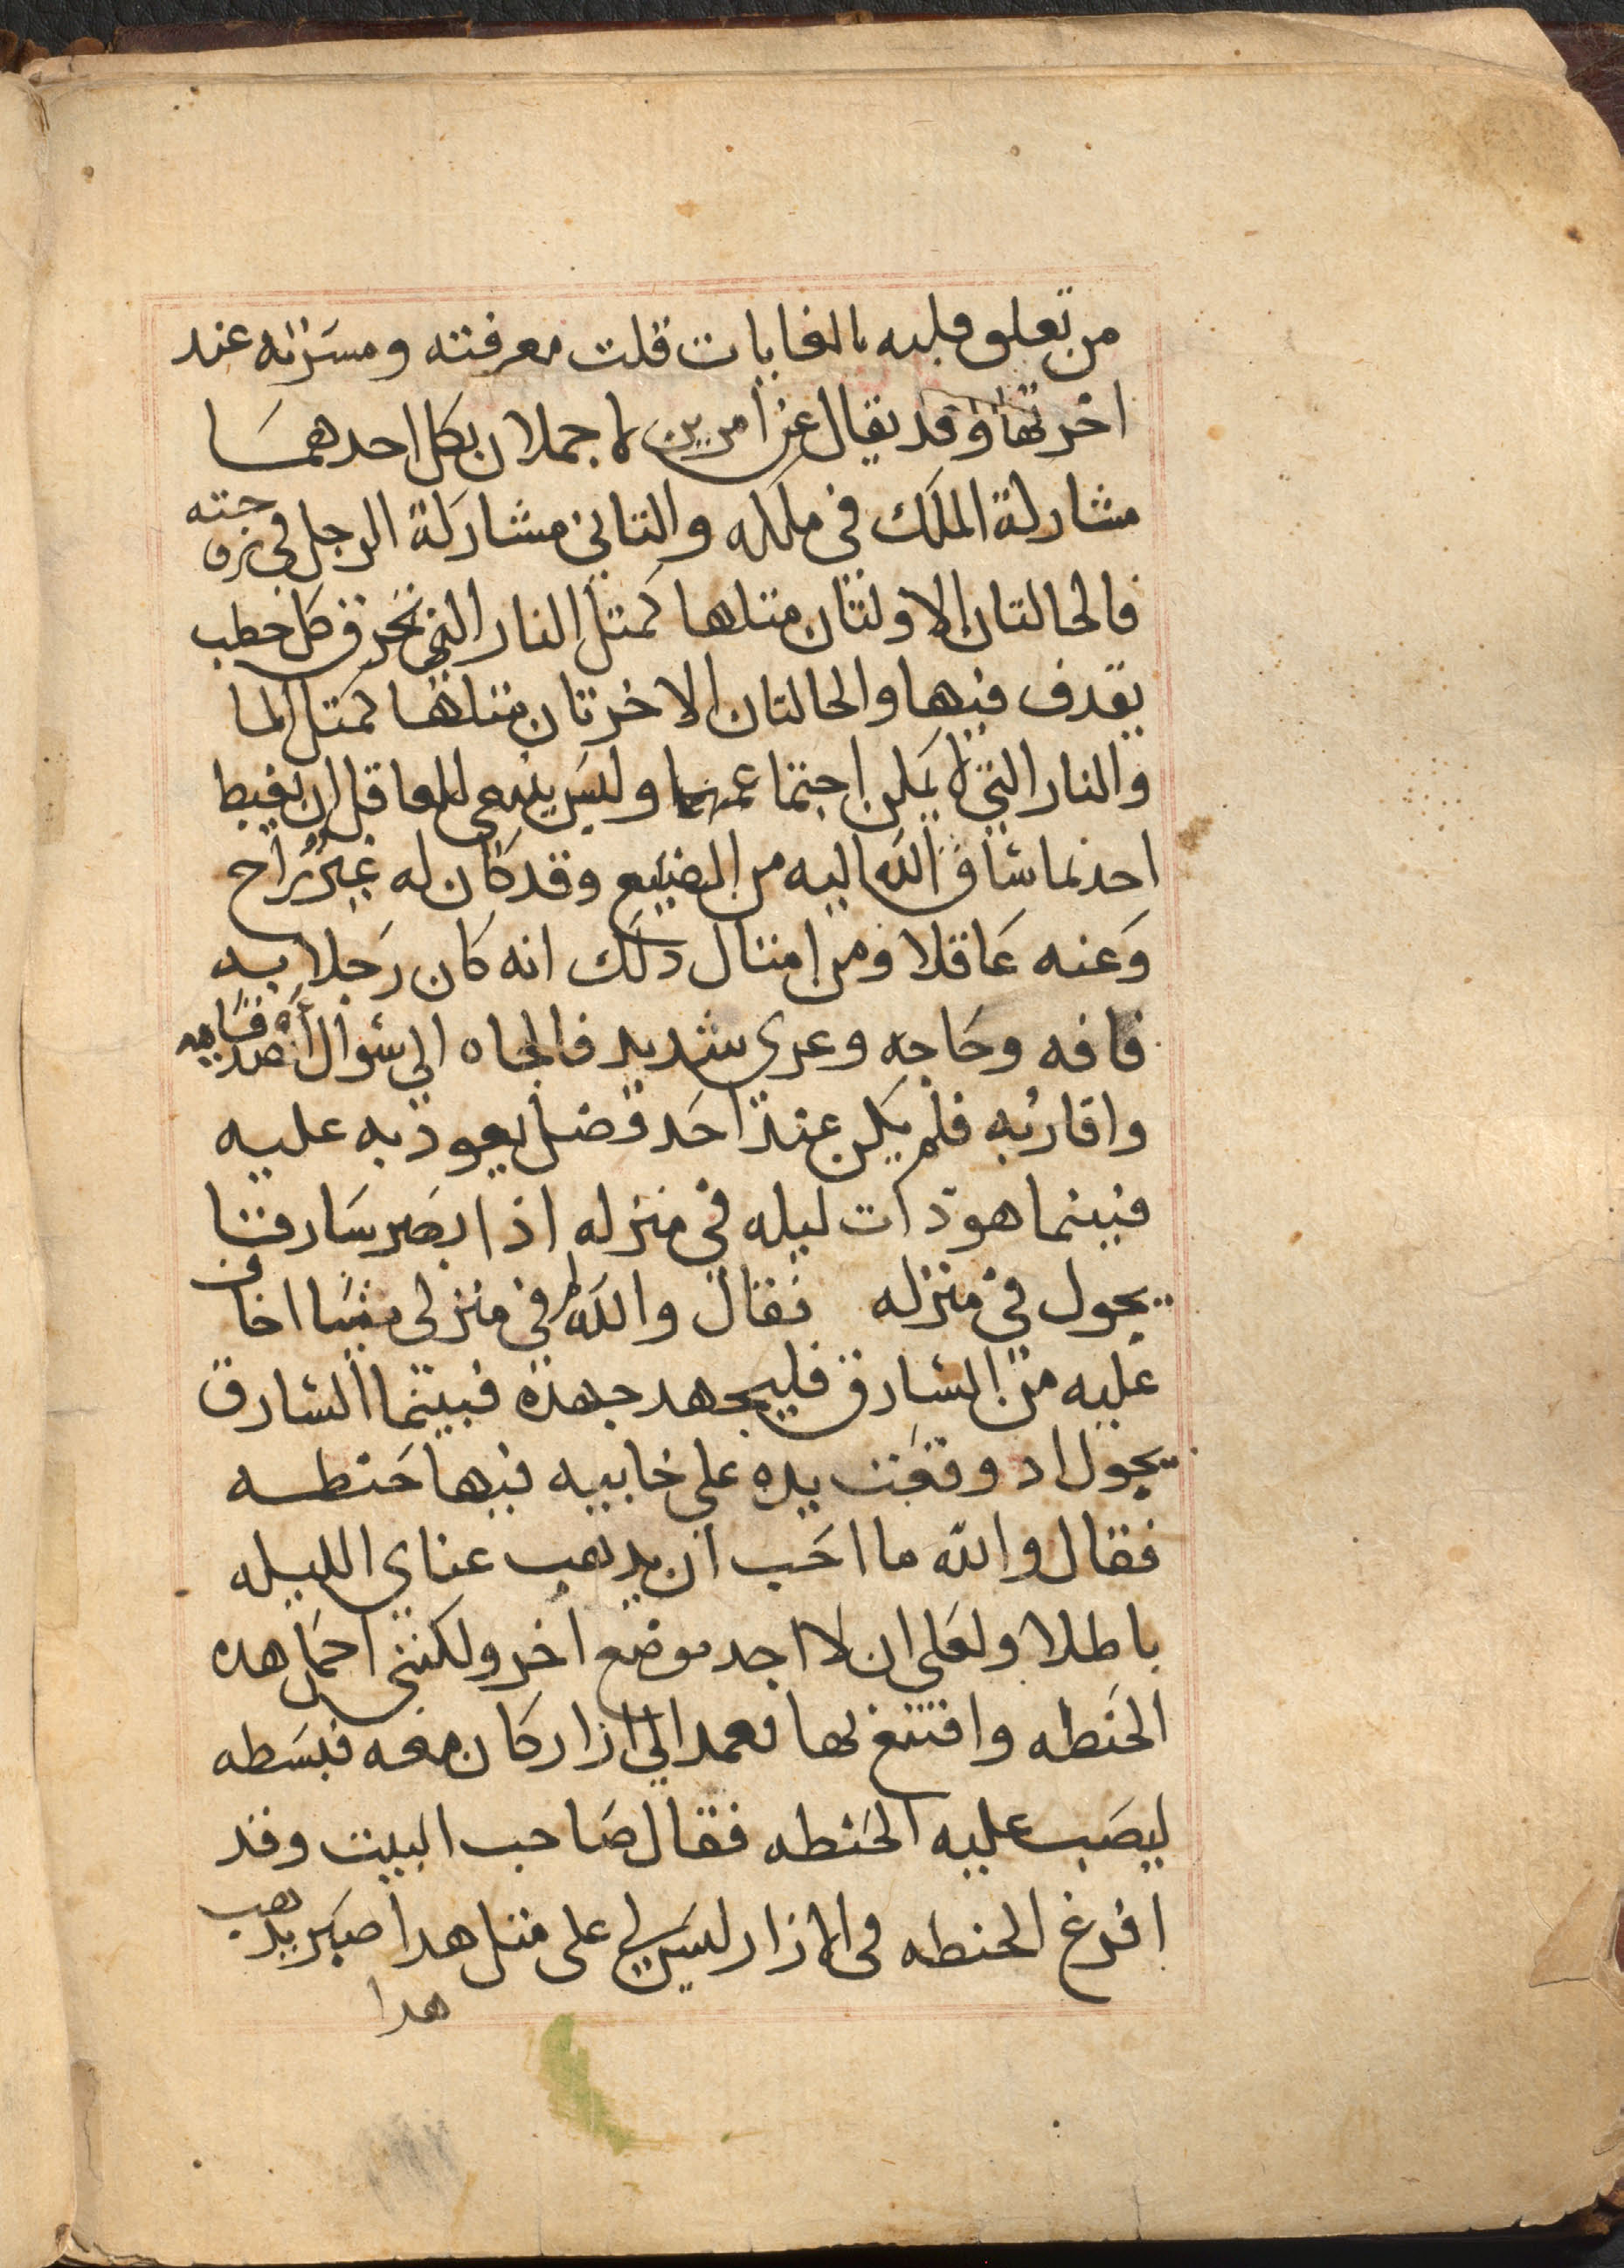 من تعلق قلبه بالغايات قلت معرفته ومسرته عند
اخرتها وقد يقال عن امرين لا يجملان بكل احد همَا
مشاركة الملك في ملكه والثاني مشاركة الرجل في زوجته
فالحالتان الاولتان مثلها كمثل النار التي تحرق كل حطب
يقدف فيها والحالتان الاخرتان مثلها كمثل الما
والنار التي لا يمكن اجتماعهما وليس ينبغي للعاقل ان يغبط
احد بما ساق الله اليه من الصنيع وقد كان له غير راج
وَعنه غافلا ومن امثال دلك انه كان رَجلا به
فاقه وحَاجه وعري شديد فالجاه الي سُوال أصدقايه
واقاربه فلم يكن عند احَد فضل يعود به عليه
فبينما هو ذات ليله في منزله اذ ابصر سَارقا
يجول في منزله فقال والله ما في منزلي شيا اخاف
عليه من السارق فليجهد جهده فبينما السارق
يجول اد وقعت يده علي خابيه فيها حَنطه
فقال والله ما احَب ان يدهب عناي الليله
باطلا ولعَلي ان لا اجد موضع اخر ولكنني احمَل هده
الحَنطه واقتنع بها فعمد الي ازار كان معه فبسَطه
ليصَب عليه الحَنطه فقال صَاحب البيت وقد
افرغ الحنطه في الازار ليس لي على مثل هدا صبَر يدهب
هدا